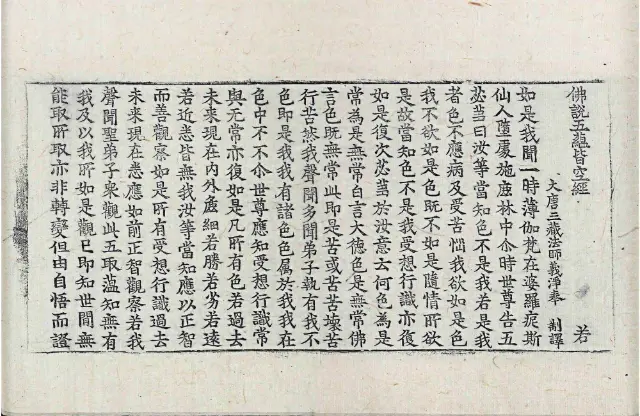 佛說五蘊皆空經 若
大唐三藏法師義淨奉 制譯
如是我聞一時薄伽梵在婆羅痆斯
仙人墮處施鹿林中尒時世尊告五
苾芻曰汝等當知色不是我若是我
者色不應病及受苦惱我欲如是色
我不欲如是色既不如是隨情所欲
是故當知色不是我受想行識亦復
如是復次苾芻於汝意云何色為是
常為是無常白言大德色是無常佛
言色既無常此即是苦或苦苦壞苦
行苦然我聲聞多聞弟子執有我不
色即是我我有諸色色屬於我我在
色中不不尒世尊應知受想行識常
與无常亦復如是凡所有色若過去
未來現在內外麁細若勝若劣若遠
若近悉皆無我汝等當知應以正智
而善觀察如是所有受想行識過去
未來現在悉應如前正智觀察若我
聲聞聖弟子衆觀此五取蘊知無有
我及以我所如是觀已即知世間無
能取所取亦非轉變但由自悟而證